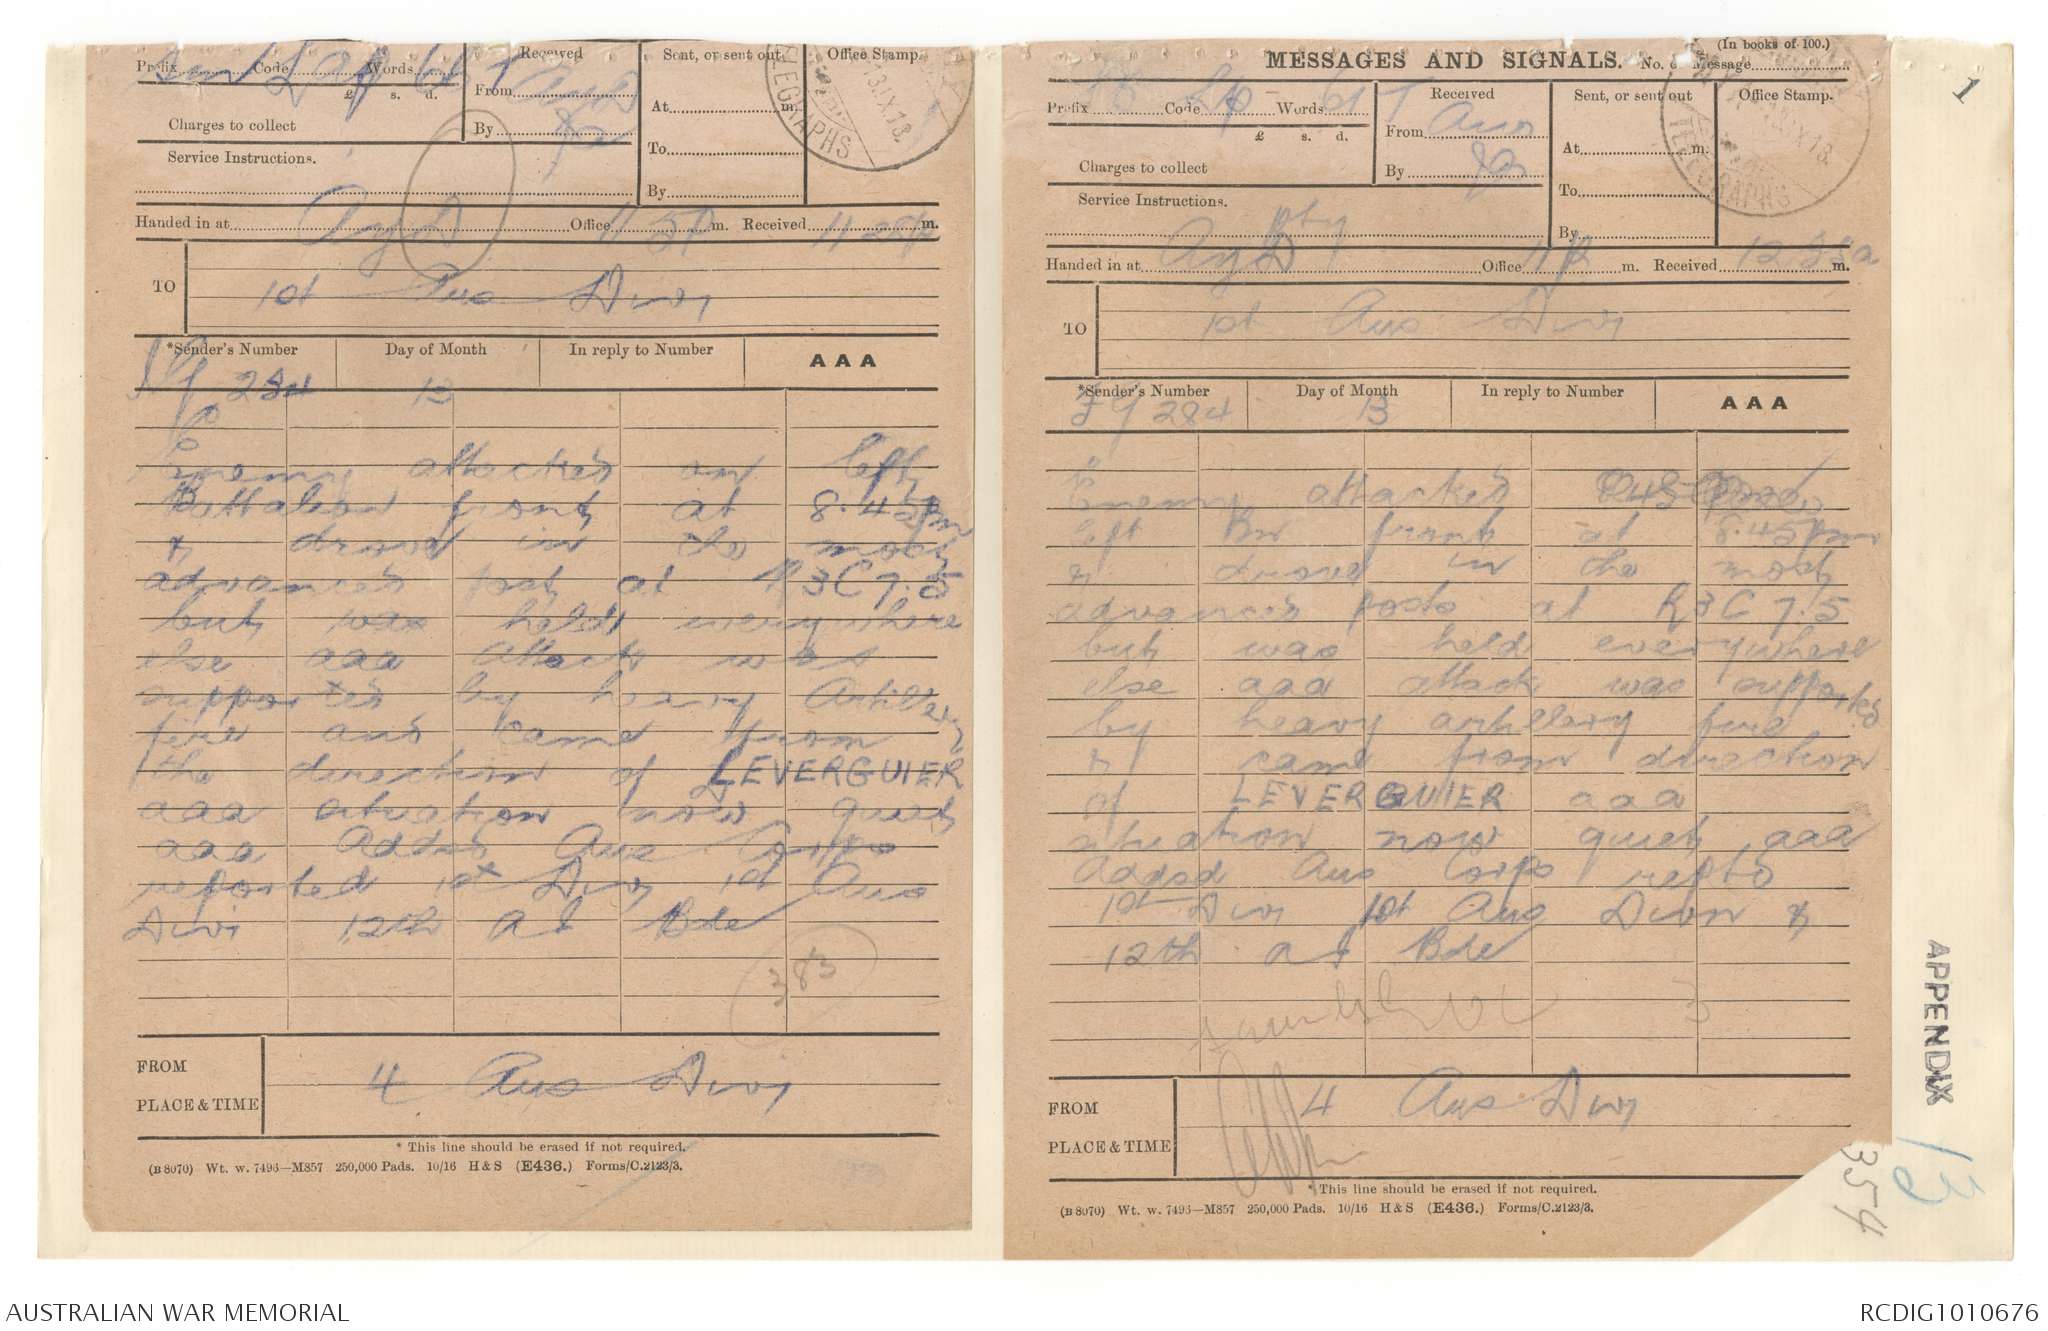 Received
Sent, or sent out
Office Stamp.
Prefix Code Words
£ s. d.
From
At m.
Charges to collect
By
Service Instructions.
To
By
TELEGRAPHS
13 IX 18
Handed in at Office 11.5P m. Received m.
TO
1st Aus Divn
*Sender's Number
Day of Month
In reply to Number
AAA
284 13
Enemy attacked on left
Battalion front at 8.45pm
& drove in the most
advanced post at R3C7.5
but was held everywhere
else aaa attack was
supported by heavy Artillery
fire and came from
the direction of LEVERGUIER
aaa situation now quiet
aaa Added Aus Corps
reported 1st Divn 1st Aus
Divn 12th A I Bde
383
FROM
4 Aus Divn
PLACE & TIME
* This line should be erased if not required.
(B 8070) Wt. w. 7493—M857 250,000 Pads. 10/16 H & S (E436.) Forms/C.2123/3.
(In books of 100.)
MESSAGES AND SIGNALS.
No. of Message
Prefix Code Words
£ s. d.
Received
Sent, or sent out
Office Stamp.
From Aus
At m.
Charges to collect
By
Service Instructions.
To
By
TELEGRAPHS
IX 18
Handed in at Office 11 P m. Received m.
TO
1st Aus Divn
*Sender's Number
Day of Month
In reply to Number
AAA
284 13
Enemy attacked
left Bn front at 8.45pm
& drove in the most
advanced posts at R3C7.5
but was held everywhere
else aaa attack was supported
by heavy artillery fire
& came from direction
of LEVERGUIER aaa
situation now quiet aaa
Addsd Aus Corps reptd
1st Divn 1st Aus Divn &
12th A I Bde
FROM
4 Aus Divn
PLACE & TIME
* This line should be erased if not required.
(B 8070) Wt. w. 7493—M857 250,000 Pads. 10/16 H & S (E436.) Forms/C.2123/3.
1
APPENDIX
13
354
AUSTRALIAN WAR MEMORIAL
RCDIG1010676